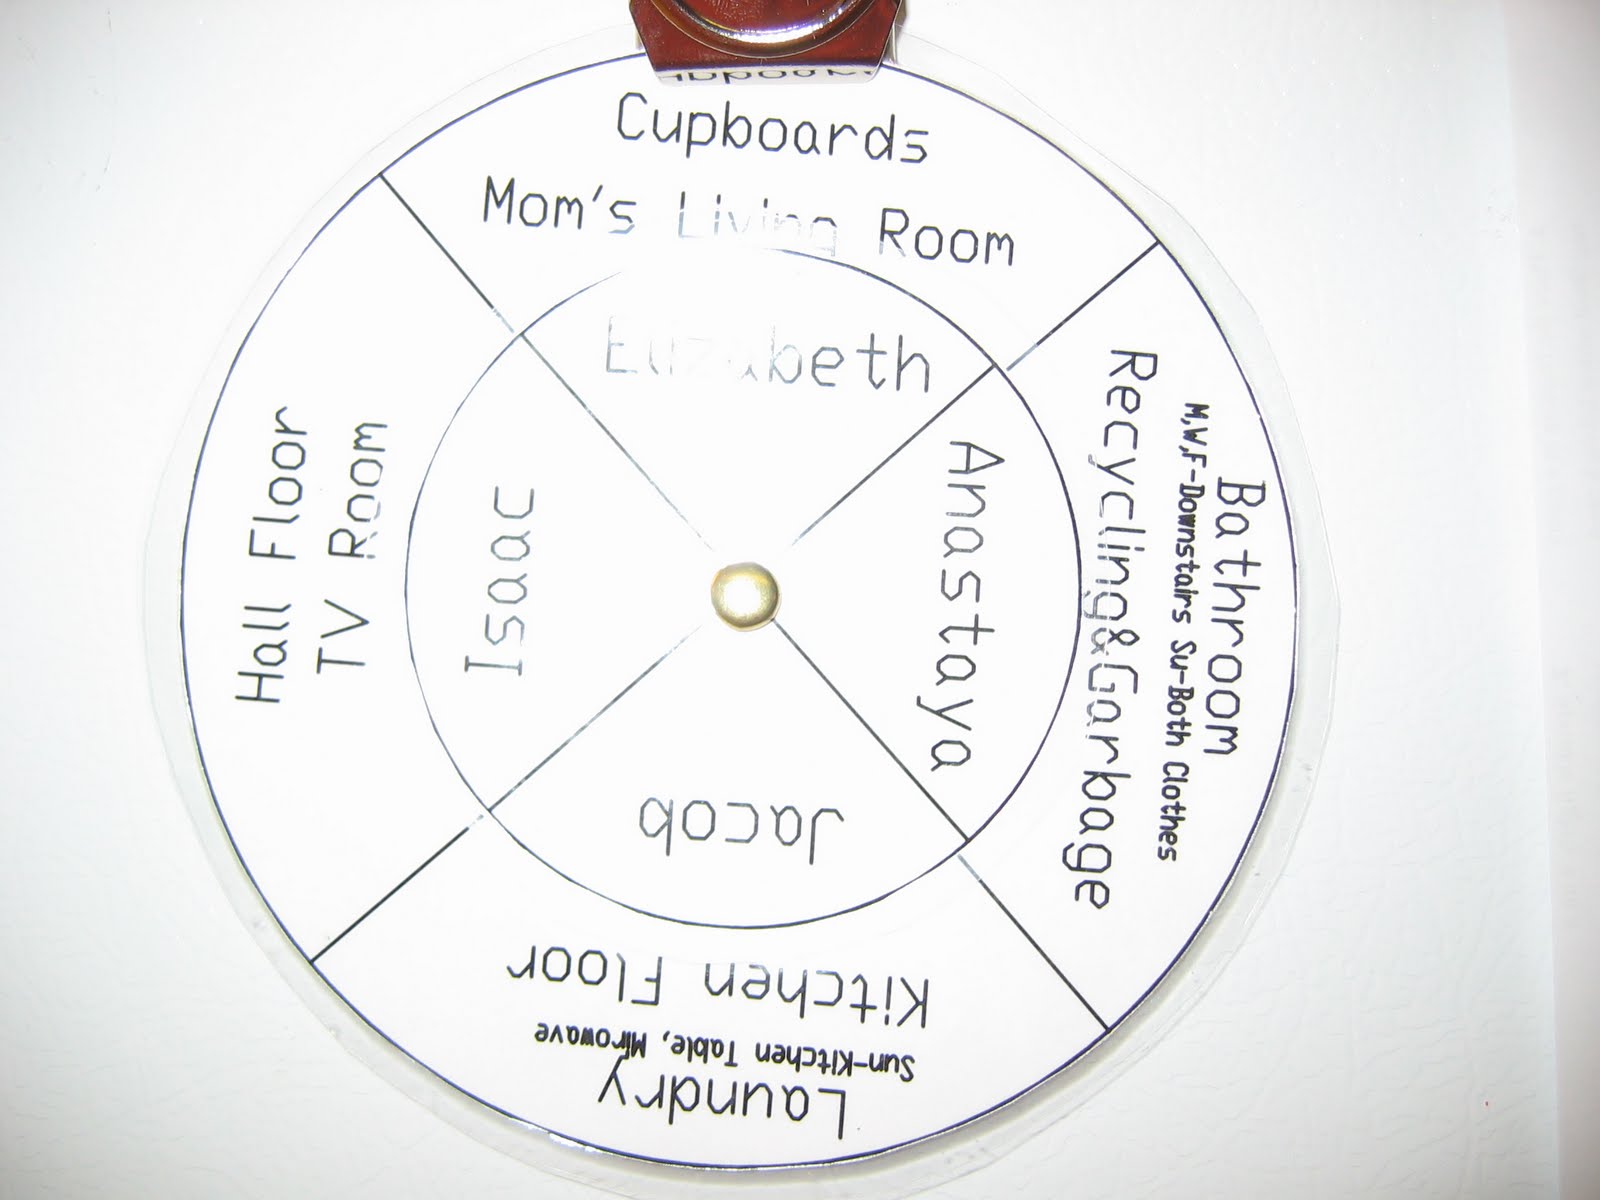 Cupboards
Mom's Living Room
Elizabeth
Bathroom
M,W,F-Downstairs Su-Both Clothes
Recycling&Garbage
Anastaya
Laundry
Sun-Kitchen Table, Mirowave
Kitchen Floor
Jacob
Hall Floor
TV Room
Isaac